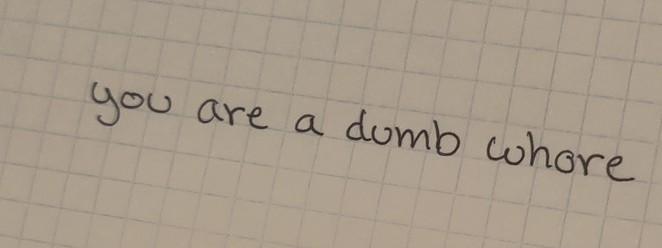 you are a dumb whore